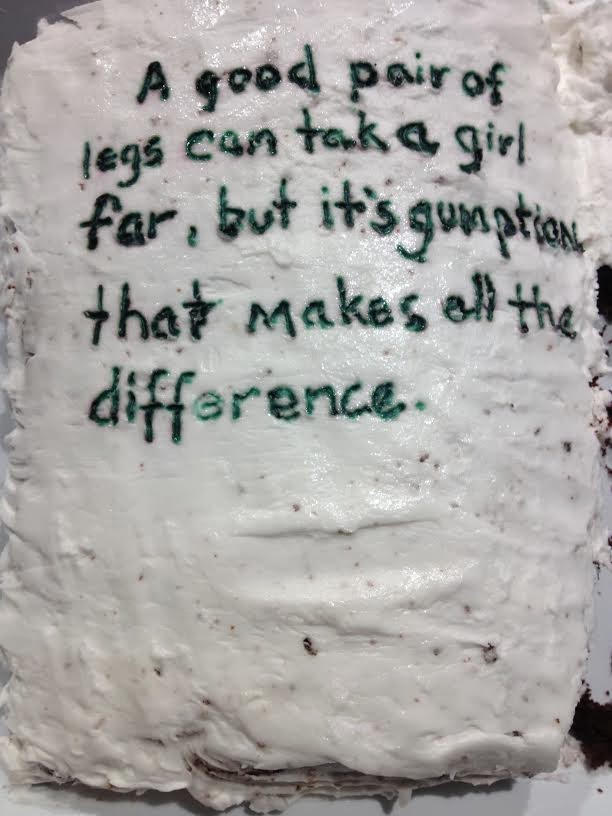 A good pair of
legs can take a girl
far, but it's gumption
that makes all the
difference.